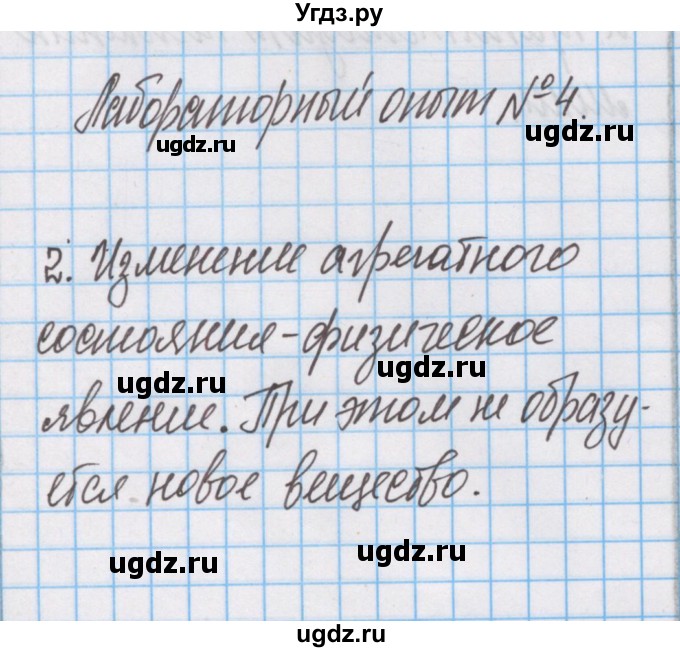 Угдз.ру
Лабораторный опыт №4.
ugdz.ru
ugdz.ru
2. Изменение агрегатного
состояния-физическое
ugdz.ru
ugdz.ru
явление. При этом не образу-
ugdz.ru
ется новое вещество.
ugdz.ru
ugdz.ru
ugdz.ru